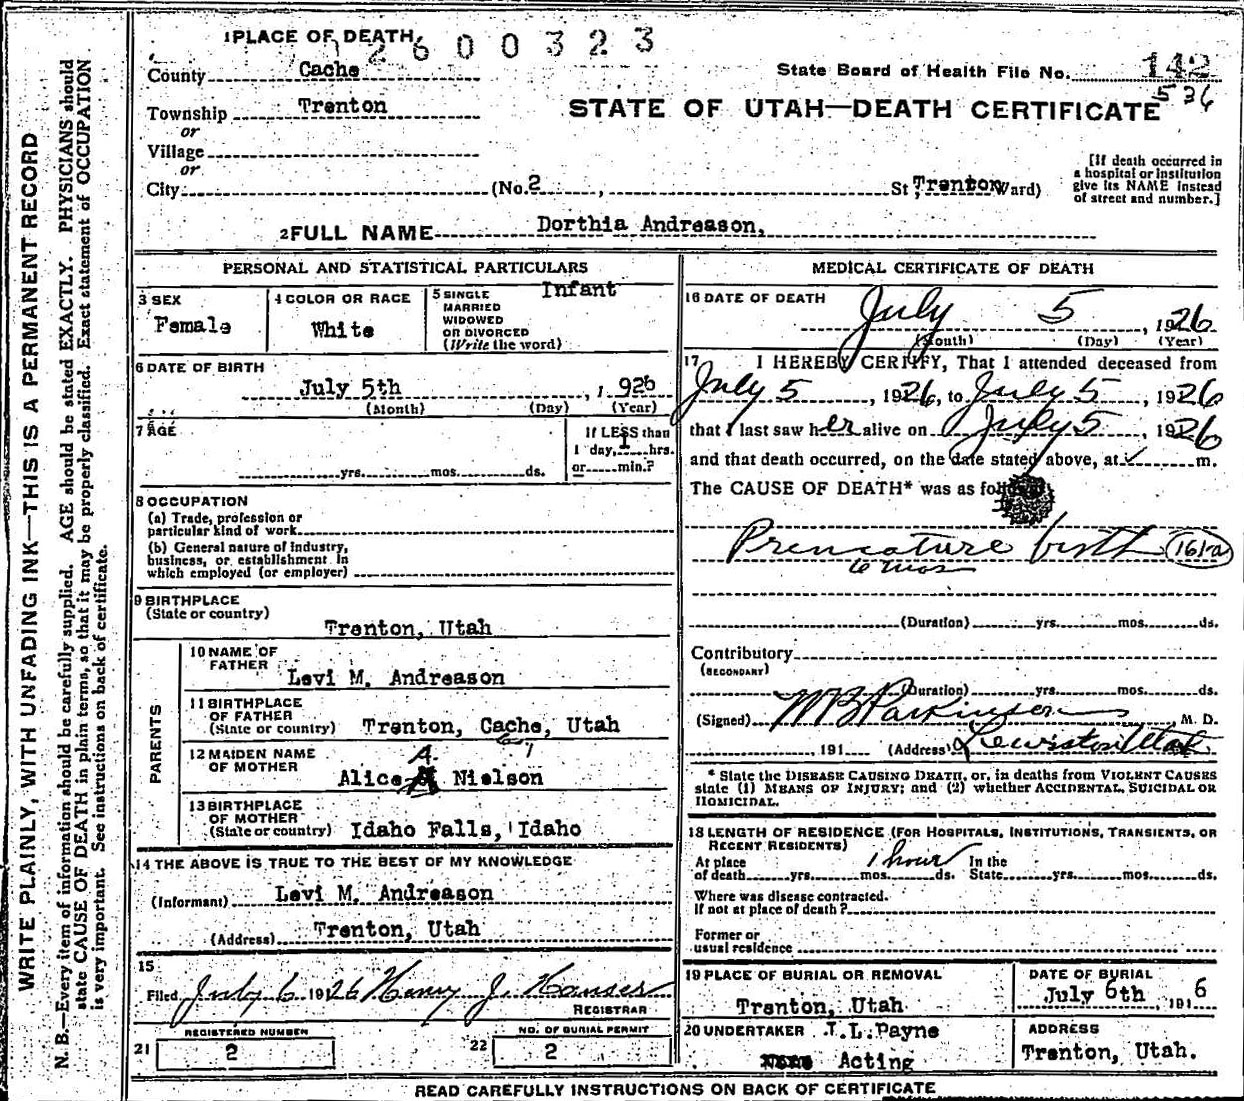 WRITE PLAINLY, WITH UNFADING INK—THIS IS A PERMANENT RECORD
N. B.—Every item of information should be carefully supplied. AGE should be stated EXACTLY. PHYSICIANS should
state CAUSE OF DEATH in plain terms, so that it may be properly classified. Exact statement of OCCUPATION
is very important. See instructions on back of certificate.
1 PLACE OF DEATH
2600323
County Cache
State Board of Health File No. 142
536
Township Trenton
STATE OF UTAH—DEATH CERTIFICATE
or
Village
or
City (No. 2, St Trenton Ward)
[If death occurred in
a hospital or institution
give its NAME instead
of street and number.]
2 FULL NAME Dorthia Andreason,
PERSONAL AND STATISTICAL PARTICULARS
3 SEX
Female
4 COLOR OR RACE
White
5 SINGLE
MARRIED
WIDOWED
OR DIVORCED
(Write the word)
Infant
6 DATE OF BIRTH
July 5th, 1926
(Month) (Day) (Year)
7 AGE
yrs. mos. ds.
If LESS than
1 day, 1 hrs.
or min.?
8 OCCUPATION
(a) Trade, profession or
particular kind of work
(b) General nature of industry,
business, or establishment in
which employed (or employer)
9 BIRTHPLACE
(State or country)
Trenton, Utah
PARENTS
10 NAME OF
FATHER
Levi M. Andreason
11 BIRTHPLACE
OF FATHER
(State or country) Trenton, Cache, Utah
12 MAIDEN NAME
OF MOTHER
A.
Alice Nielson
13 BIRTHPLACE
OF MOTHER
(State or country) Idaho Falls, Idaho
14 THE ABOVE IS TRUE TO THE BEST OF MY KNOWLEDGE
(Informant) Levi M. Andreason
(Address) Trenton, Utah
15
Filed July 6 1926 Henry J. Hauser
REGISTRAR
REGISTERED NUMBER
21 2
NO. OF BURIAL PERMIT
22 2
MEDICAL CERTIFICATE OF DEATH
16 DATE OF DEATH
July 5, 1926
(Month) (Day) (Year)
17 I HEREBY CERTIFY, That I attended deceased from
July 5, 1926, to July 5, 1926
that I last saw her alive on July 5, 1926
and that death occurred, on the date stated above, at ✓ m.
The CAUSE OF DEATH* was as
Premature birth 161-a
6 mos
(Duration) yrs. mos. ds.
Contributory
(SECONDARY)
(Duration) yrs. mos. ds.
(Signed) W B Parkinson, M. D.
, 191 (Address) Lewiston Utah
* State the DISEASE CAUSING DEATH, or, in deaths from VIOLENT CAUSES
state (1) MEANS OF INJURY; and (2) whether ACCIDENTAL, SUICIDAL OR
HOMICIDAL.
18 LENGTH OF RESIDENCE (FOR HOSPITALS, INSTITUTIONS, TRANSIENTS, OR
RECENT RESIDENTS)
1 hour
At place In the
of death yrs. mos. ds. State yrs. mos. ds.
Where was disease contracted.
If not at place of death?
Former or
usual residence
19 PLACE OF BURIAL OR REMOVAL
Trenton, Utah
DATE OF BURIAL
July 6th, 1916
20 UNDERTAKER J.L.Payne
None Acting
ADDRESS
Trenton, Utah.
READ CAREFULLY INSTRUCTIONS ON BACK OF CERTIFICATE